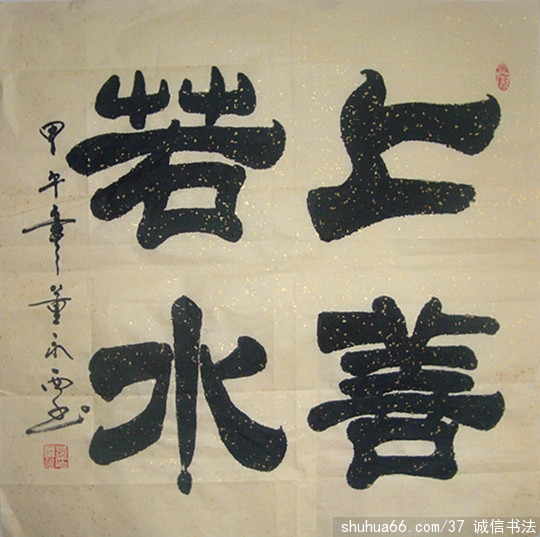 上善
若水
甲午年董永西书
shuhua66.com/37 诚信书法